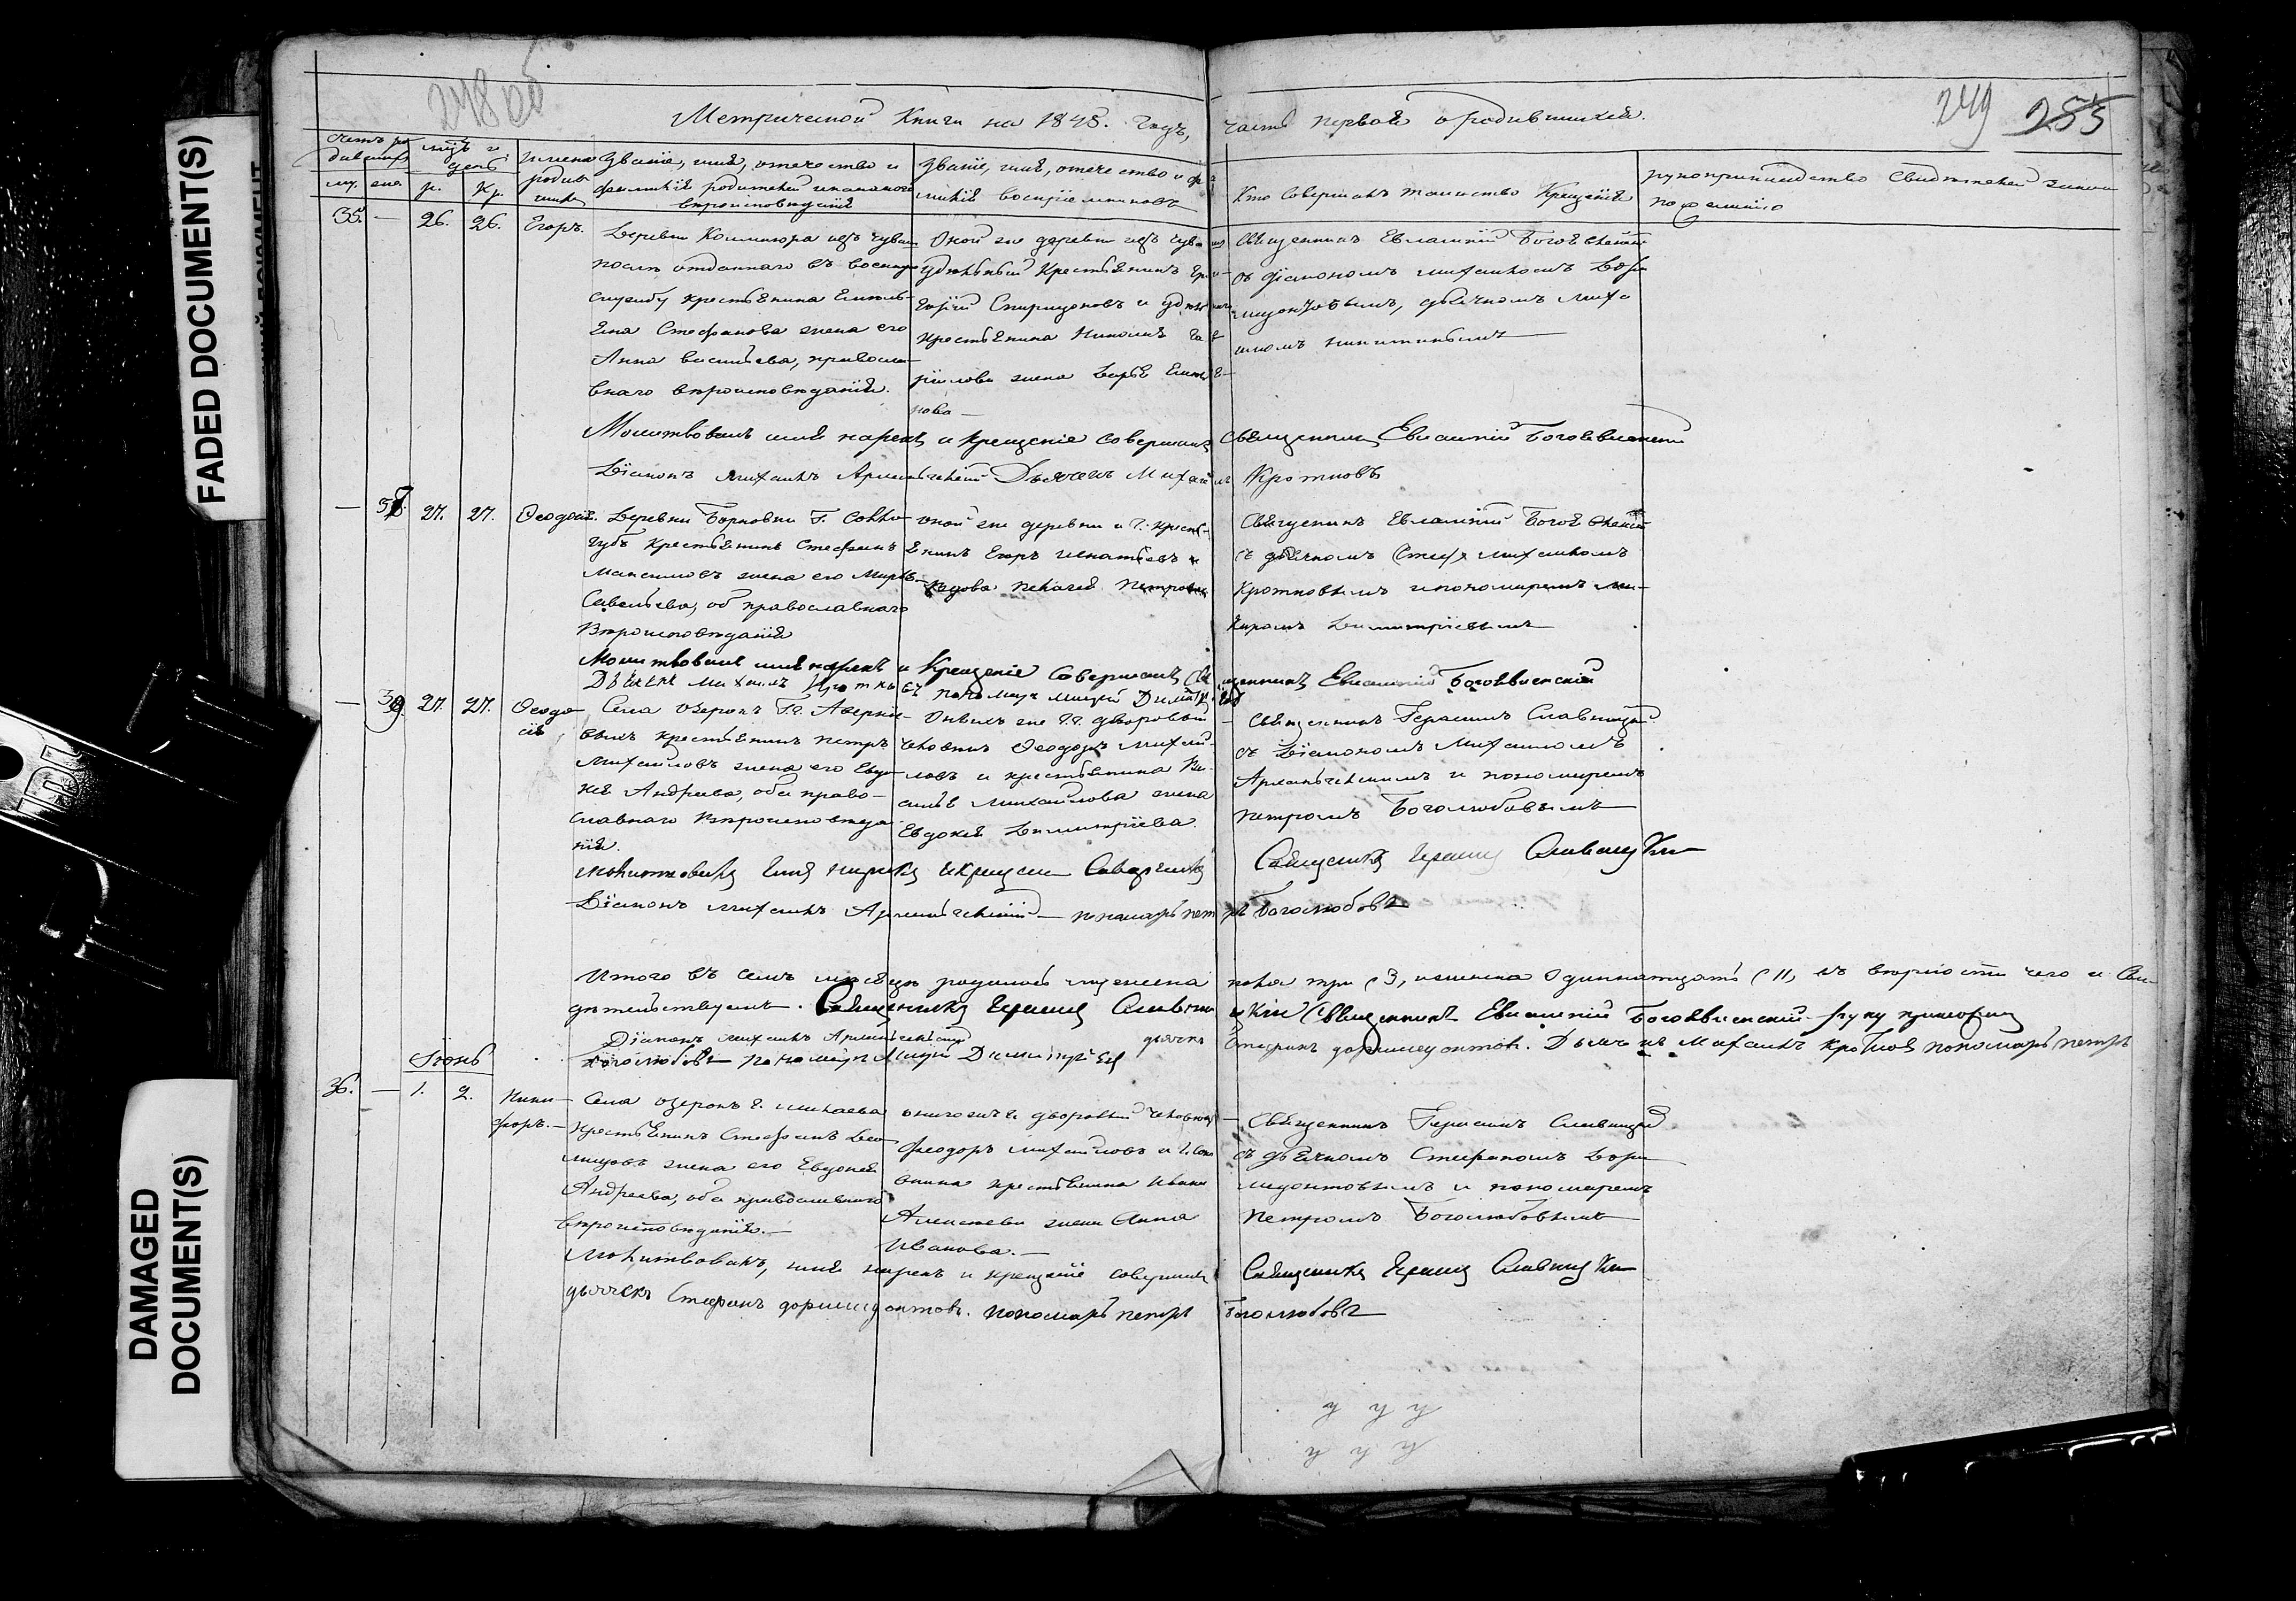 FADED DOCUMENT(S)
DAMAGED
DOCUMENT(S)
248 об
249 255
Метрической Книги на 1848. Годъ, часть первая о родившихся.
Счетъ ро
дивших
мѣс и
день
имена
родив
шихся
Званіе, имя, отечество и
фамилія родителей и какого
вѣроисповѣданія
Званіе, имя, отечество и фа
милія воспріемниковъ
Кто совершалъ таинство Крещенія
рукоприкладство свидѣтелей записи
по желанію
му. же. р. кр.
35. — 26. 26. Егоръ.
Деревни из чуваш
послѣ отданнаго въ военную
службу крестьянина Емель-
яна Стефанова жена его
Анна Васильева, правосла-
внаго вѣроисповѣданія.
Оной же деревни изъ чуваш
удѣльный Крестьянинъ Гри-
горій Спиридоновъ и удѣльн
крестьянина Николая Гав
рилова жена Дарья Емель
нова —
Священникъ Евлампій Богоявленскій
съ діакономъ Михаиломъ
дьячкомъ Миха
иломъ
Молитвовалъ имя нарекъ и крещеніе совершалъ священникъ Евлампій Богоявленскій
Діаконъ Михаилъ Дьячекъ Михаилъ Кротковъ
— 38. 27. 27. Ѳеодосія.
Деревни Борковки Г.
крестьянинъ Стефанъ
Максимовъ жена его Марѳа
Савельева, об православнаго
Вѣроисповѣданія
оной же деревни и г. кресть-
янинъ Егоръ Игнатьевъ и
вдова Пелагея Петрова
Священникъ Евлампій Богоявленскій
съ дьячкомъ Михаиломъ
Кротковымъ и пономаремъ Ми-
Димитріевымъ
Молитвовалъ имя нарекъ и крещеніе совершалъ священникъ Евлампій Богоявленскій
Дьячекъ Михаилъ Кротковъ пономарь
— 39. 27. 27. Ѳеодо
сія
Села Озерокъ Г.г.
выхъ крестьянинъ Петръ
Михайловъ жена его Евдо-
кія Андреева, оба право-
славнаго Вѣроисповѣда-
нія.
Оныхъ же г.г. дворовый
человѣкъ Ѳеодоръ Михай-
ловъ и крестьянина Ва-
силья Михайлова жена
Евдокія Димитріева.
Священникъ Герасимъ Славницкій
съ Діакономъ Михаиломъ
и пономаремъ
Петромъ Боголюбовымъ
Молитвовалъ имя нарекъ и крещеніе совершалъ Священникъ Герасимъ Славницкій
Діаконъ Михаилъ — пономарь Петръ Боголюбовъ
Итого въ семъ мѣсяцѣ родилось мужеска пола три (3, и женска одиннадцать (11, въ вѣрности чего и сви-
дѣтельствуемъ. Священникъ Герасимъ Славницкій Священникъ Евлампій Богоявленскій руку приложилъ
Діаконъ Михаилъ дьячекъ Стефанъ Доримедонтовъ. Дьячекъ Михаилъ Кротковъ пономарь Петръ
Боголюбовъ пономарь Димитріевъ
Іюнь
36. — 1. 2. Ники-
форъ.—
Села Озерокъ г.
Крестьянинъ Стефанъ
жена его Евдокія
Андреева, оба православнаго
вѣроисповѣданія.—
онаго же г. дворовый человѣкъ
Ѳеодоръ Михайловъ и г.
крестьянина Ивана
Алексѣева жена Анна
Иванова.—
Священникъ Герасимъ Славницкій
съ дьячкомъ Стефаномъ Дори
медонтовымъ и пономаремъ
Петромъ Боголюбовымъ
Молитвовалъ, имя нарекъ и крещеніе совершалъ Священникъ Герасимъ Славницкій
дьячекъ Стефанъ Доримедонтовъ. пономарь Петръ Боголюбовъ
у у у
у у у